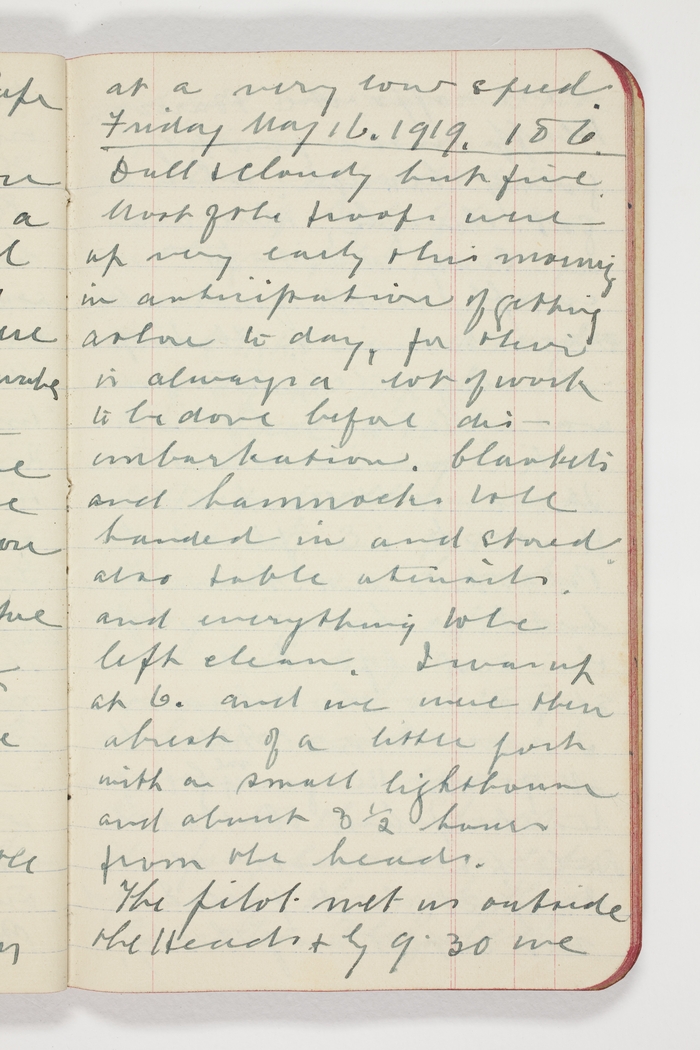 at a very low speed.
Friday May 16. 1919. 186.
Dull & cloudy but fine.
Most of the troops were
up very early this morning
in anticipation of getting
ashore to day, for there
is always a lot of work
to be done before dis-
embarkation. blankets
and hammocks to be
handed in and stored
also table utensils.
and everything to be
left clean. I was up
at 6. and we were then
abrest of a little port
with a small lighthouse
and about 3 1/2 hours
from the heads.
The pilot met us outside
the Heads & by 9.30 we